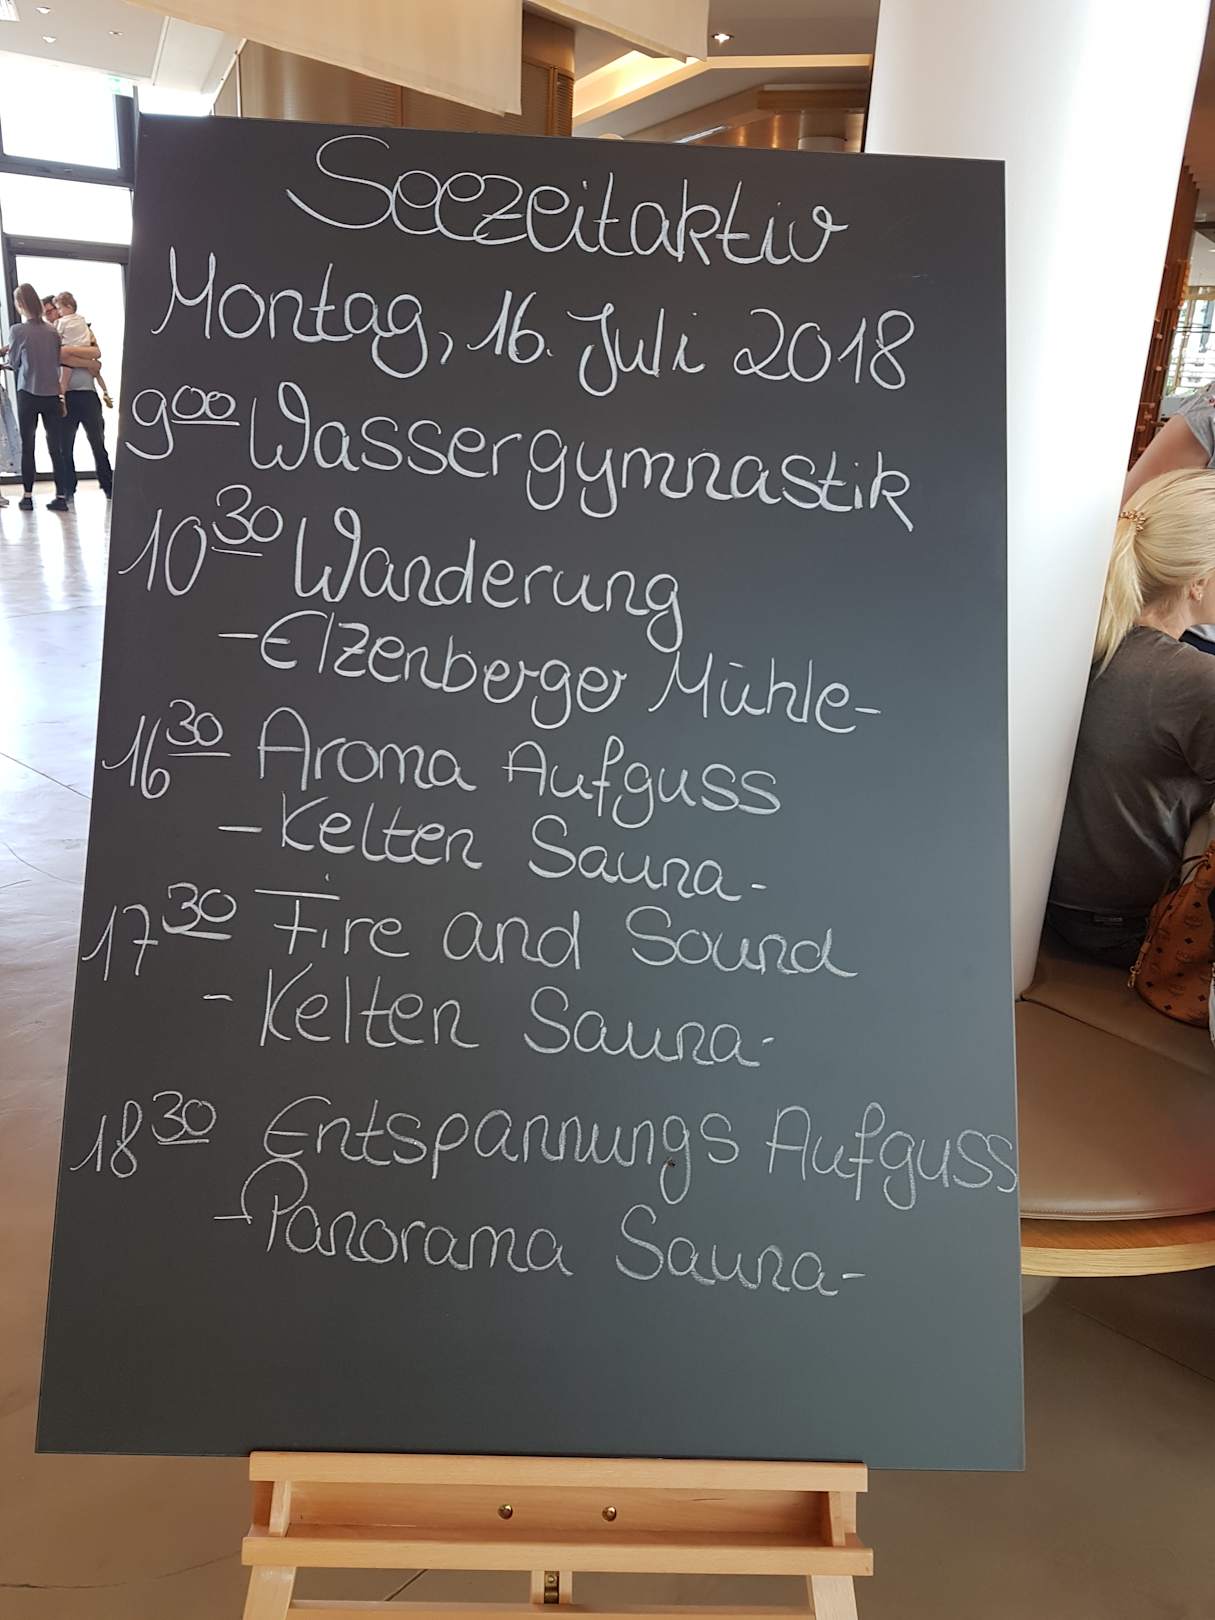 Seezeitaktiv
Montag, 16. Juli 2018
9⁰⁰ Wassergymnastik
10³⁰ Wanderung
-Elzenberger Mühle-
16³⁰ Aroma Aufguss
-Kelten Sauna-
17³⁰ Fire and Sound
-Kelten Sauna-
18³⁰ Entspannungs Aufguss
-Panorama Sauna-